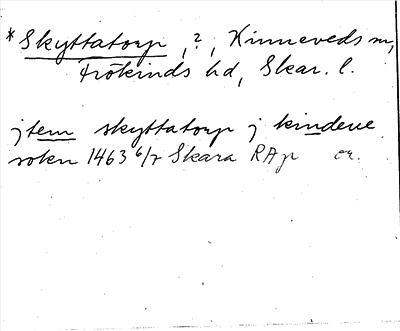 *Skyttatorp, ?, Kinneveds sn,
Frökinds hd, Skar. l.
jtem skyttatorp j kindeue
soken 1463 6/7 Skara RAp or.